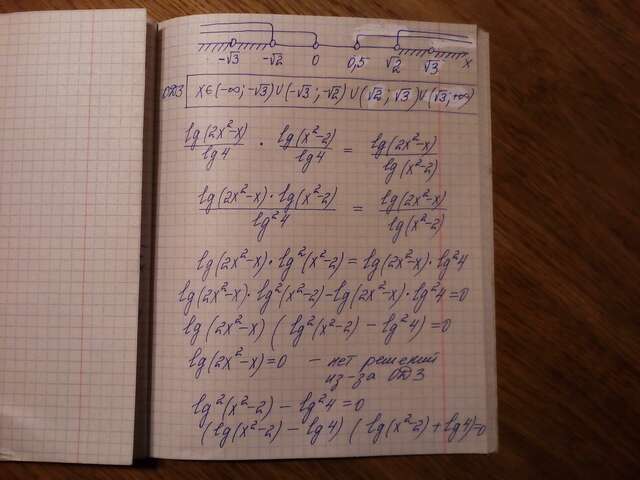 -√3 -√2 0 0,5 √2 √3 x
ОДЗ x∈(-∞; -√3)∪(-√3; -√2)∪(√2; √3)∪(√3; +∞)
lg(2x²-x)/lg4 · lg(x²-2)/lg4 = lg(2x²-x)/lg(x²-2)
lg(2x²-x)·lg(x²-2)/lg²4 = lg(2x²-x)/lg(x²-2)
lg(2x²-x)·lg²(x²-2) = lg(2x²-x)·lg²4
lg(2x²-x)·lg²(x²-2)-lg(2x²-x)·lg²4=0
lg(2x²-x)(lg²(x²-2)-lg²4)=0
lg(2x²-x)=0 - нет решений
из-за ОДЗ
lg²(x²-2)-lg²4=0
(lg(x²-2)-lg4)(lg(x²-2)+lg4)=0